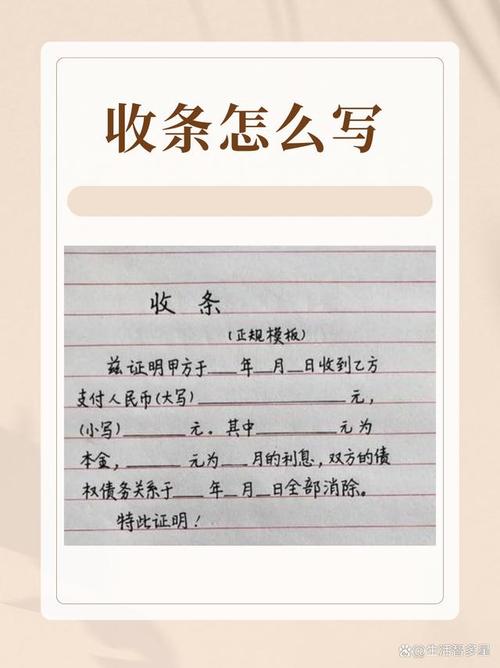 收条怎么写
收条
(正规模板)
兹证明甲方于___年__月__日收到乙方
支付人民币(大写)______________元,
(小写)______元。其中________元为
本金,______元为___月的利息,双方的债
权债务关系于___年__月__日全部消除。
特此证明!
@生涯智多星